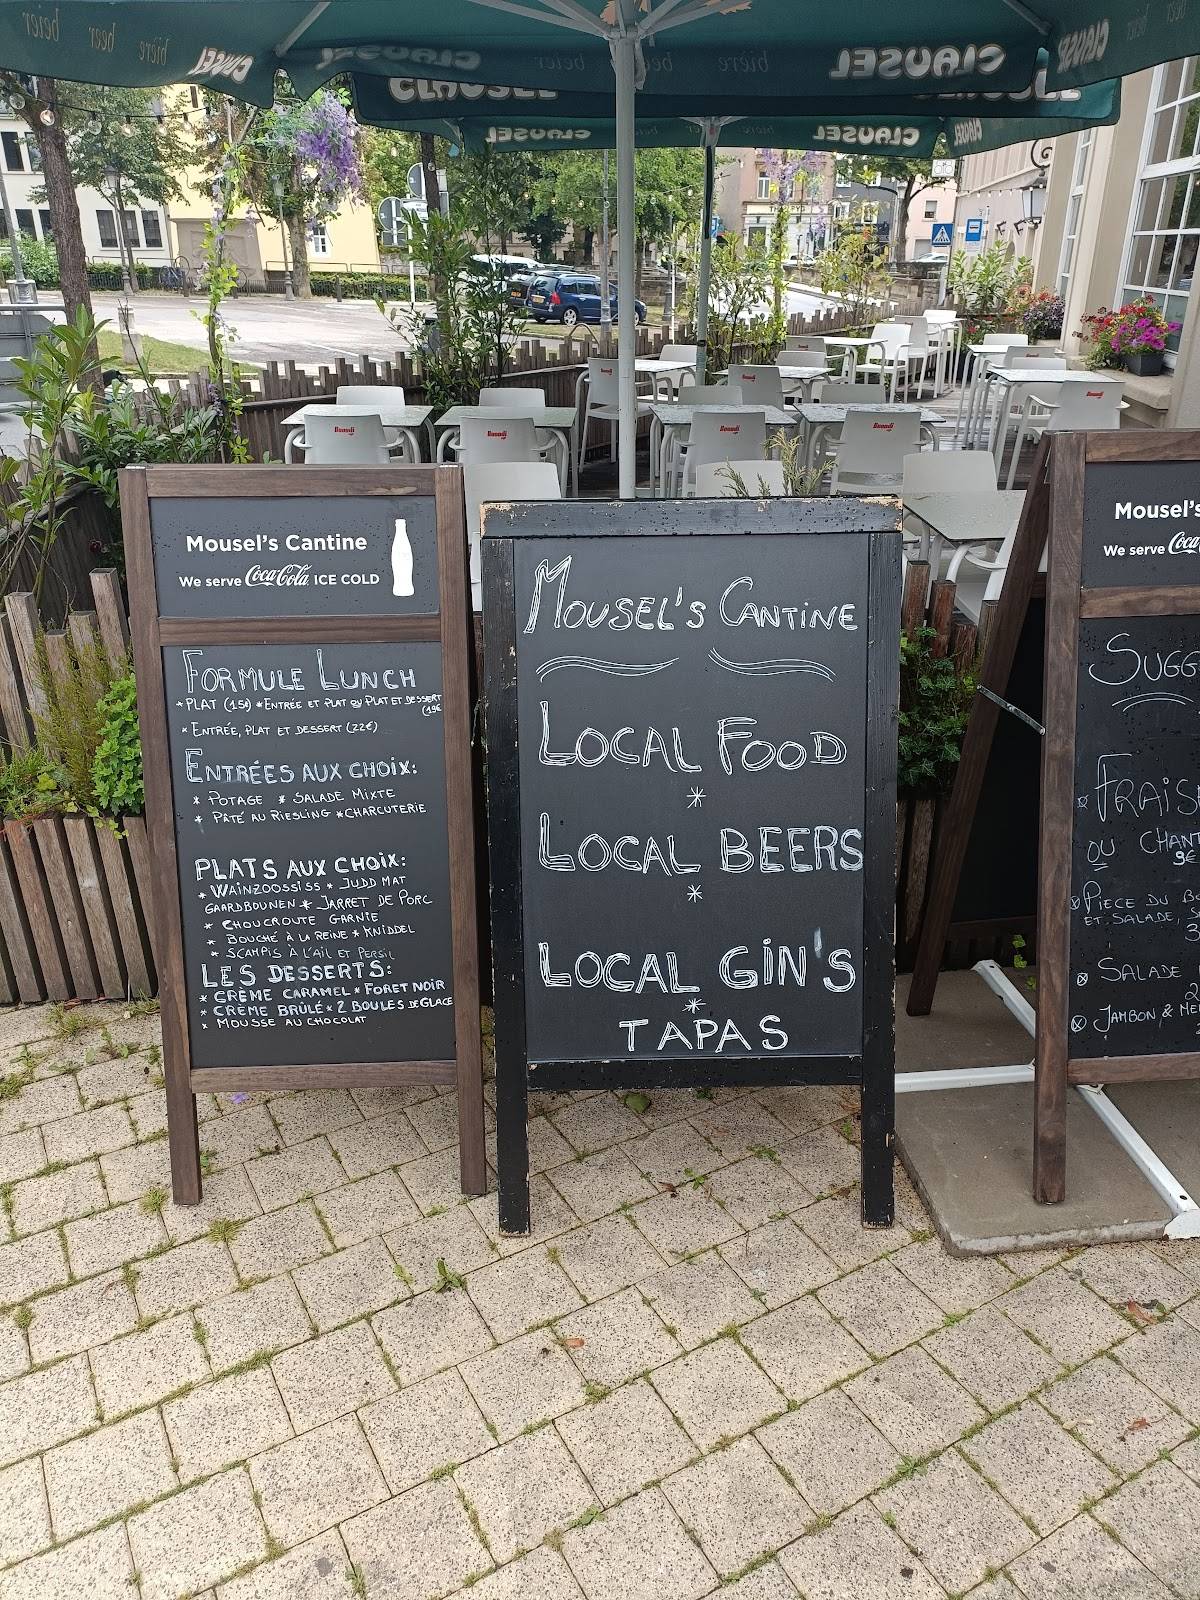 CLAUSEL
CLAUSEL
CLAUSEL
CLAUSEL
bière
beer
beier
CLAUSEL
CLAUSEL
CLAUSEL
Bonardi
Mousel's Cantine
We serve Coca-Cola ICE COLD
FORMULE LUNCH
* PLAT (15€) * ENTRÉE ET PLAT OU PLAT ET DESSERT
(19€
* ENTRÉE, PLAT ET DESSERT (22€)
ENTRÉES AUX CHOIX:
* POTAGE * SALADE MIXTE
* PÂTÉ AU RIESLING * CHARCUTERIE
PLATS AUX CHOIX:
* WAINZOOSSISS * JUDD MAT
GAARDBOUNEN * JARRET DE PORC
* CHOUCROUTE GARNIE
* BOUCHÉ À LA REINE * KNIDDEL
* SCAMPIS À L'AIL ET PERSIL
LES DESSERTS:
* CRÈME CARAMEL * FORET NOIR
* CRÈME BRÛLÉ * 2 BOULES DE GLACE
* MOUSSE AU CHOCOLAT
MOUSEL'S CANTINE
LOCAL FOOD
*
LOCAL BEERS
*
LOCAL GIN'S
*
TAPAS
Mousel's
We serve Coca
SUGG
FRAIS
OU CHANT
9€
PIECE DU B
ET SALADE,
3
SALADE
2
JAMBON & ME